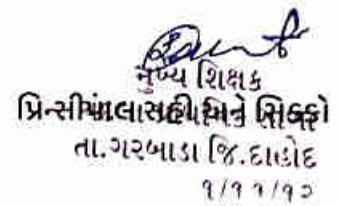 મુખ્ય શિક્ષક
પ્રિન્સીપાલ સહી અને સિક્કો
તા.ગરબાડા જિ.દાહોદ
૧/૧૧/૧૨